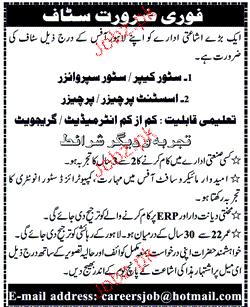 فوری ضرورت سٹاف
ایک بڑے اشاعتی ادارے کو اپنے لاہور آفس کے درج ذیل سٹاف کی
ضرورت ہے۔
1۔ سٹور کیپر / سٹور سپروائزر
2۔ اسسٹنٹ پرچیزر / پرچیزر
تعلیمی قابلیت: کم از کم انٹرمیڈیٹ / گریجویٹ
تجربہ و دیگر شرائط
کسی صنعتی ادارے میں کام کرنے کا 2 سے 3 سال کا تجربہ ہو۔
امیدوار مائیکروسافٹ آفس میں مہارت، کمپیوٹرائزڈ سٹور انوینٹری کا
تجربہ رکھتا ہو۔
محنتی دیانت دار اور ERP پر کام کرنے والے کو ترجیح دی جائے گی۔
عمر 22 سے 30 سال کے درمیان ہو۔ لاہور کے رہائشی کو ترجیح دی جائے گی۔
خواہشمند حضرات اپنی درخواست مکمل کوائف اور حالیہ تصویر کے ساتھ درج ذیل
ای میل پر اشتہار ہذا کی اشاعت کے پانچ یوم کے اندر بھیج دیں۔
E-mail address: careersjob@hotmail.com